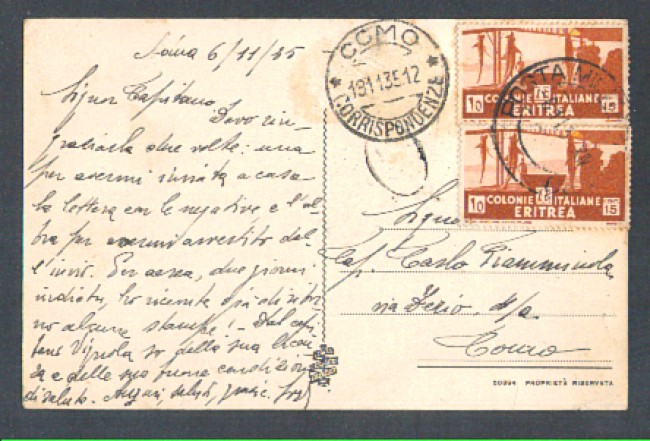 6/11/35
Signor Capitano,
Devo rin-
graziarla due volte: una
per avermi inviata a casa
la lettera con le negative e l'al-
tra per avermi avvertito del
l'invio. Per essa, due giorni
indietro, ho ricevuto già di ritor
no alcune stampe! - Dal capi
tano Vignola so della sua licen
za e delle sue buone condizioni
di salute. Auguri, saluti, grazie.
COMO
191135 12
CORRISPONDENZE
POSTA MI
10 COLONIE ITALIANE 15
ERITREA
10 COLONIE ITALIANE 15
ERITREA
Signor
Cap. Carlo
via
Como
PROPRIETÀ RISERVATA